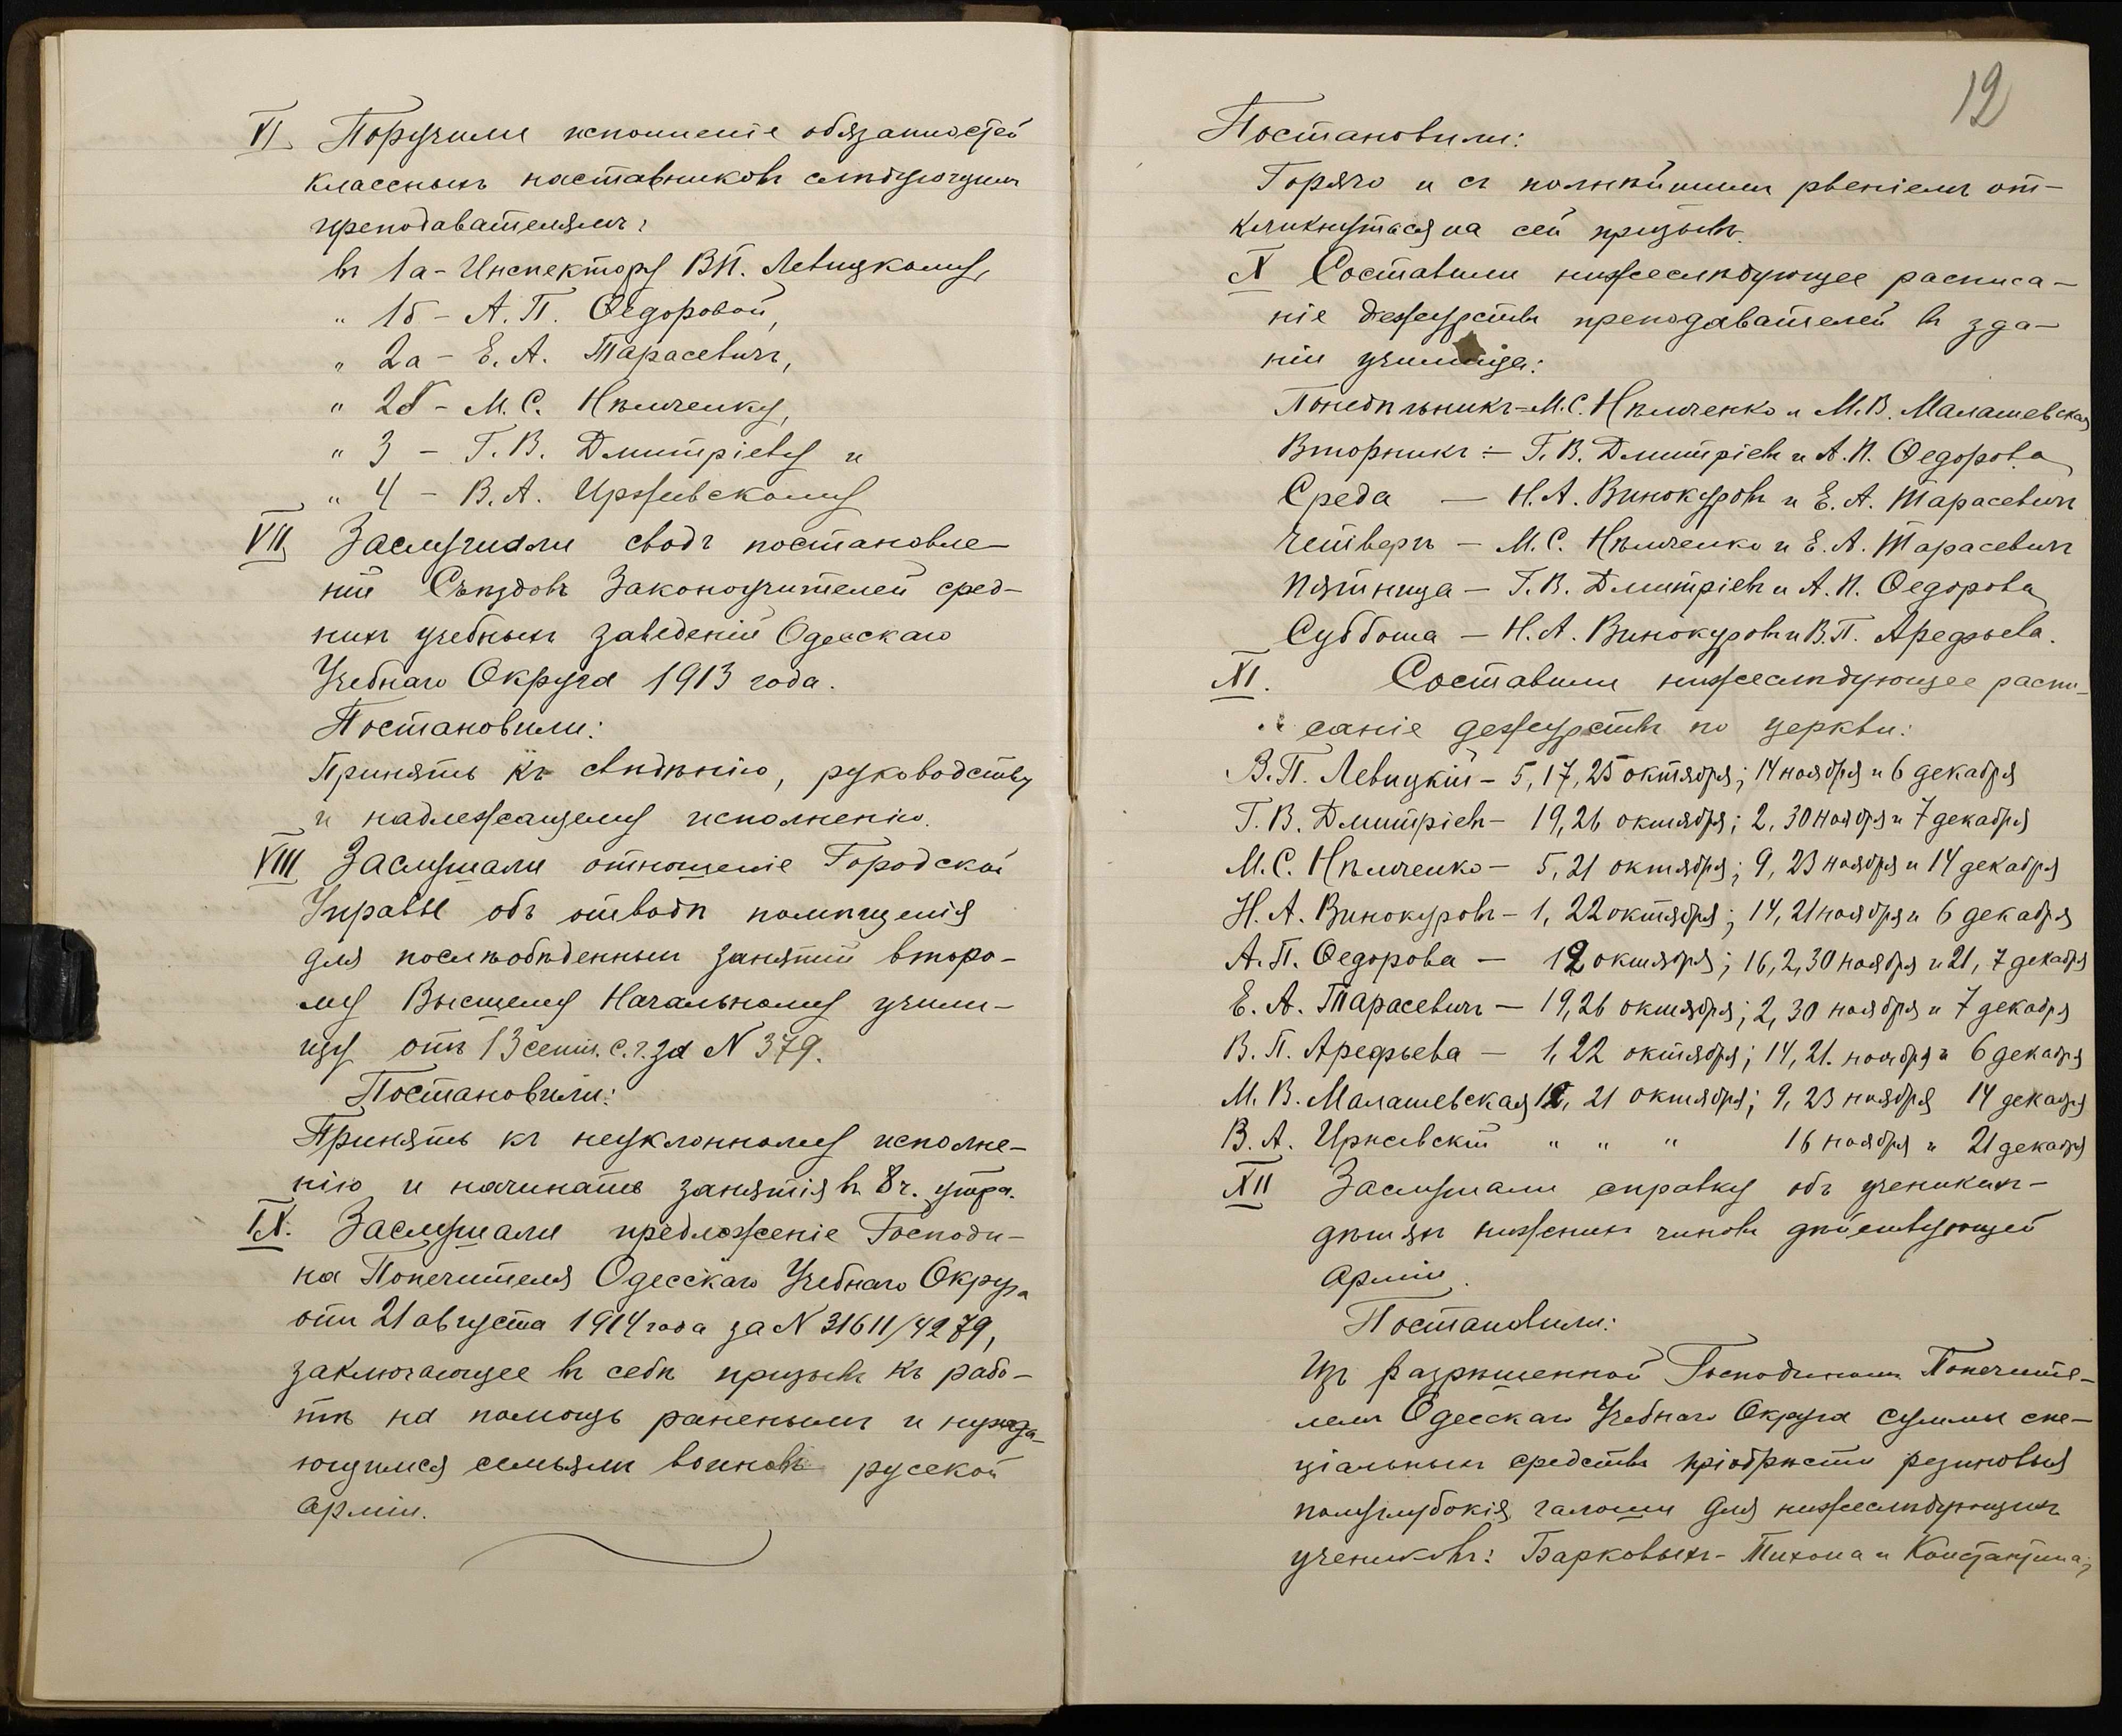 VI Поручили исполненіе обязанностей
классныхъ наставниковъ слѣдующимъ
преподавателямъ:
въ 1а - Инспектору В.П. Левицкому,
" 1б - А. П. Ѳедоровой,
" 2а - Е. А. Тарасевичъ,
" 2б - М. С. Нѣмченку,
" 3 - Г. В. Дмитріеву и
" 4 - В. А. Иржевскому
VII Заслушали сводъ постановле-
ній Съѣздовъ Законоучителей сред-
нихъ учебныхъ заведеній Одесскаго
Учебнаго Округа 1913 года.
Постановили:
Принять къ свѣдѣнію, руководству
и надлежащему исполненію.
VIII Заслушали отношеніе Городской
Управы объ отводѣ помѣщенія
для послѣобѣденныхъ занятій второ-
му Высшему Начальному учили-
щу отъ 13 сент. с. г. за N 379.
Постановили:
Принять къ неуклонному исполне-
нію и начинать занятія въ 8 ч. утра.
IX. Заслушали предложеніе Господи-
на Попечителя Одесскаго Учебнаго Округа
отъ 21 августа 1914 года за N 31611/4279,
заключающее въ себѣ призывъ къ рабо-
тѣ на помощь раненымъ и нужда-
ющимся семьямъ воиновъ русской
арміи.
12
Постановили:
Горячо и съ полнѣйшимъ рвеніемъ от-
кликнуться на сей призывъ.
X Составили нижеслѣдующее расписа-
ніе дежурствъ преподавателей въ зда-
ніи училища:
Понедѣльникъ - М.С. Нѣмченко и М.В. Малашевская
Вторникъ - Г. В. Дмитріевъ и А. П. Ѳедорова
Среда - Н. А. Винокуровъ и Е. А. Тарасевичъ
Четвергъ - М. С. Нѣмченко и Е. А. Тарасевичъ
Пятница - Г. В. Дмитріевъ и А. П. Ѳедорова
Суббота - Н. А. Винокуровъ и В. П. Арефьева.
XI. Составили нижеслѣдующее распи-
саніе дежурствъ по церкви:
В. П. Левицкій - 5, 17, 25 октября; 14 ноября и 6 декабря
Г. В. Дмитріевъ - 19, 26 октября; 2, 30 ноября и 7 декабря
М. С. Нѣмченко - 5, 21 октября; 9, 23 ноября и 14 декабря
Н. А. Винокуровъ - 1, 22 октября; 14, 21 ноября и 6 декабря
А. П. Ѳедорова - 12 октября; 16, 2, 30 ноября и 21, 7 декабря
Е. А. Тарасевичъ - 19, 26 октября; 2, 30 ноября и 7 декабря
В. П. Арефьева - 1, 22 октября; 14, 21. ноября и 6 декабря
М. В. Малашевская 12, 21 октября; 9, 23 ноября 14 декабря
В. А. Иржевскій " " " 16 ноября и 21 декабря
XII Заслушали справку объ ученикахъ-
дѣтяхъ нижнихъ чиновъ дѣйствующей
арміи.
Постановили:
Изъ разрѣшенной Господиномъ Попечите-
лемъ Одесскаго Учебнаго Округа суммы спе-
ціальныхъ средствъ пріобрѣсти резиновыя
полуглубокія галоши для нижеслѣдующихъ
учениковъ: Барковыхъ - Тихона и Константина,